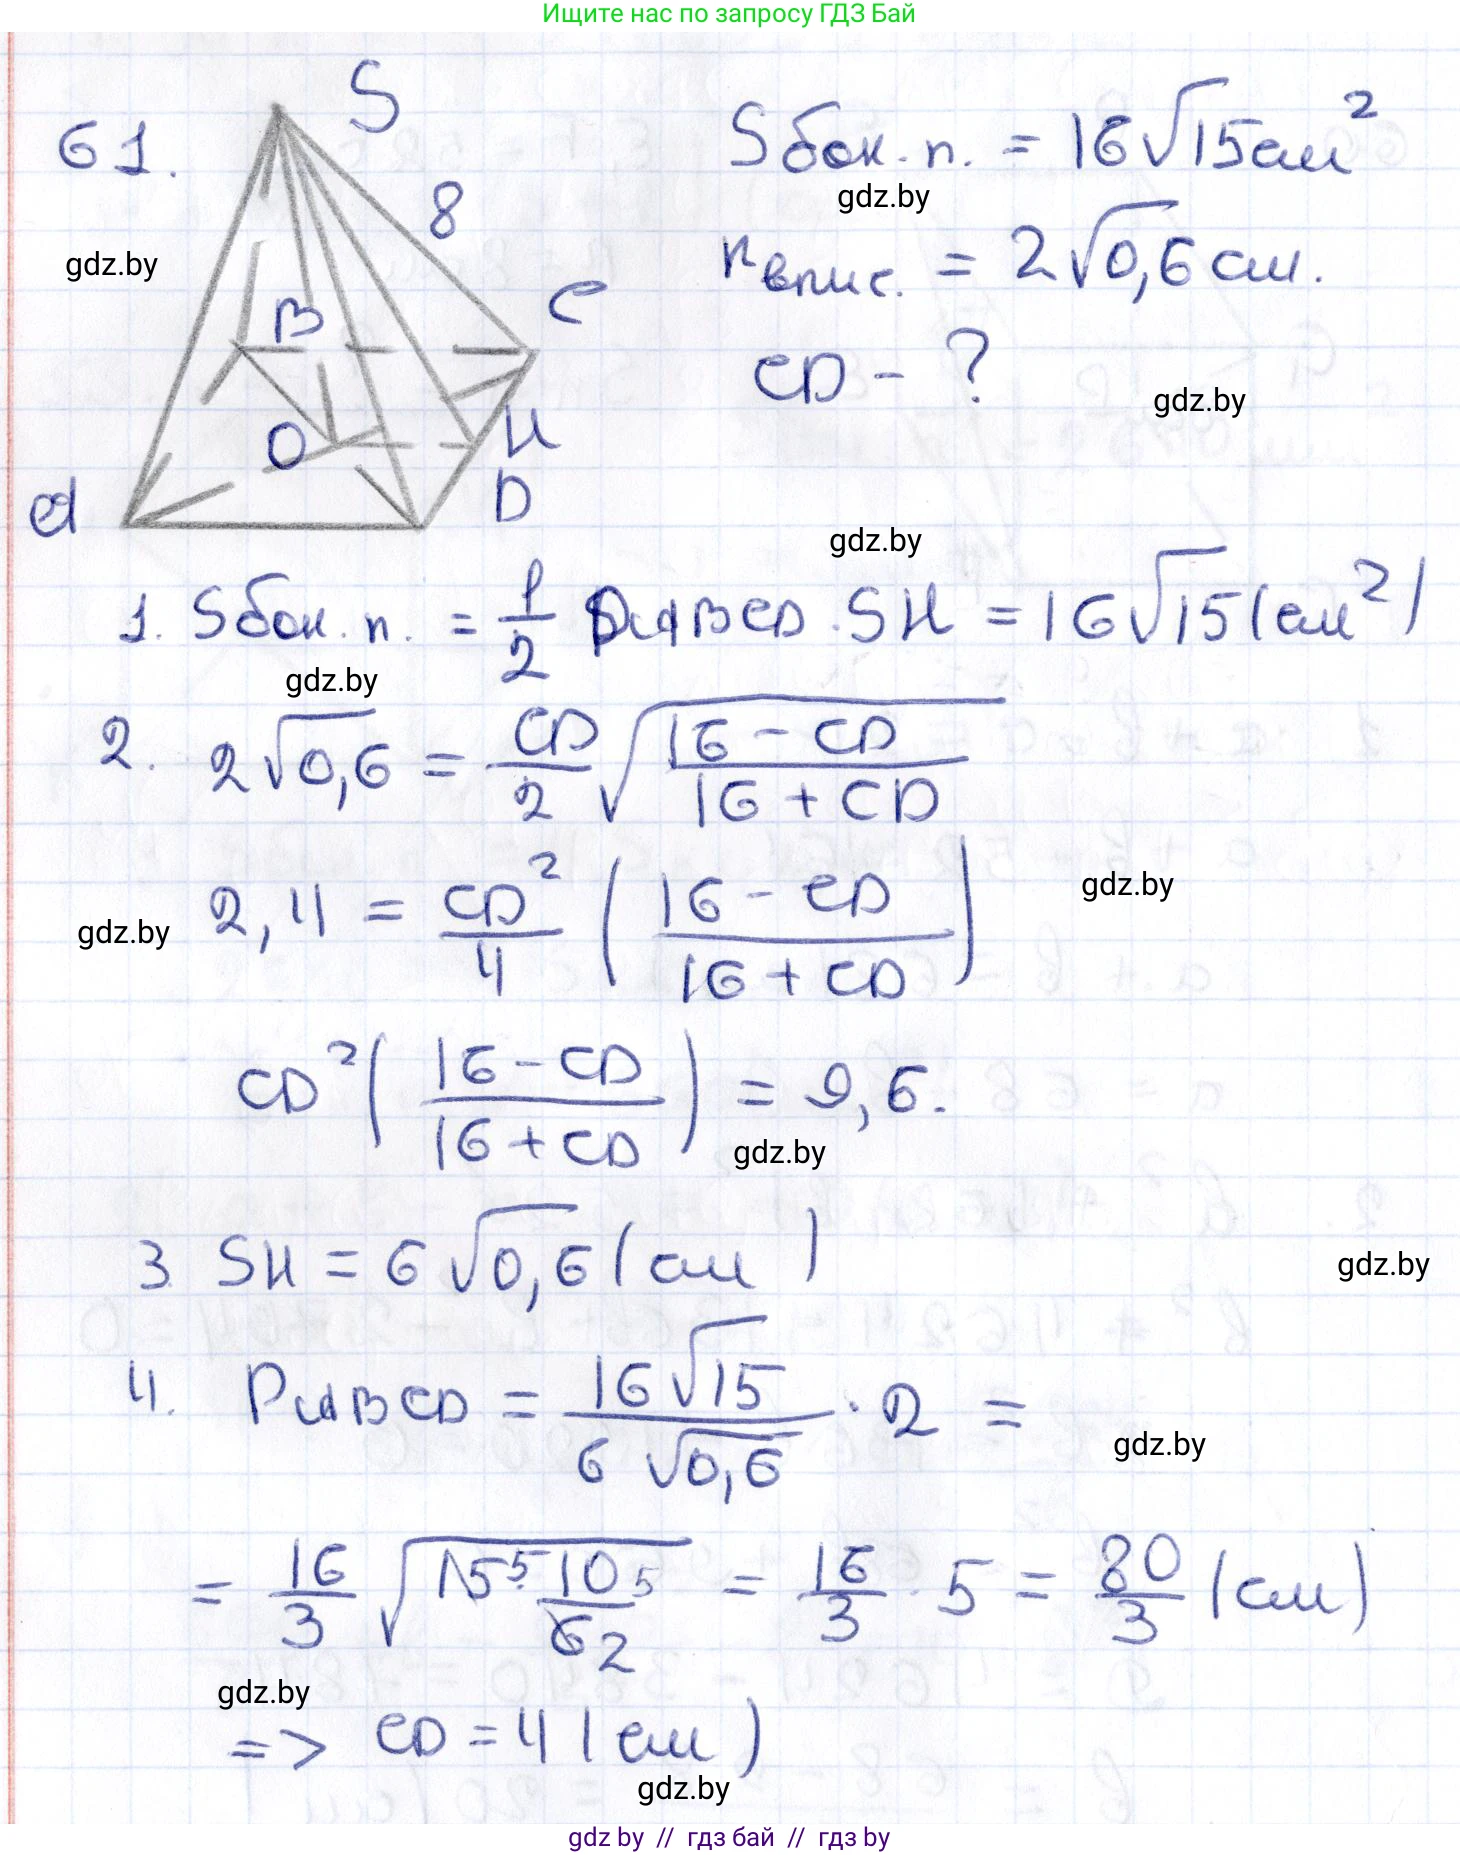 Ищите нас по запросу ГДЗ Бай
61.
S
8
B
C
O
H
D
A
gdz.by
Sбок. п. = 16√15 см²
gdz.by
rвпис. = 2√0,6 см.
CD - ?
gdz.by
gdz.by
1. Sбок. п. = 1/2 PABCD · SH = 16√15 (см²)
gdz.by
2. 2√0,6 = CD/2 √((16 - CD)/(16 + CD))
2,4 = CD²/4 ((16 - CD)/(16 + CD))
gdz.by
gdz.by
CD² ((16 - CD)/(16 + CD)) = 9,6.
gdz.by
3 SH = 6√0,6 (см)
gdz.by
4. PABCD = 16√15/6√0,6 · 2 =
gdz.by
= 16/3 √(15 5 · 10 5/6 2) = 16/3 · 5 = 80/3 (см)
gdz.by
=> CD = 4 (см)
gdz.by
gdz by // гдз бай // гдз by